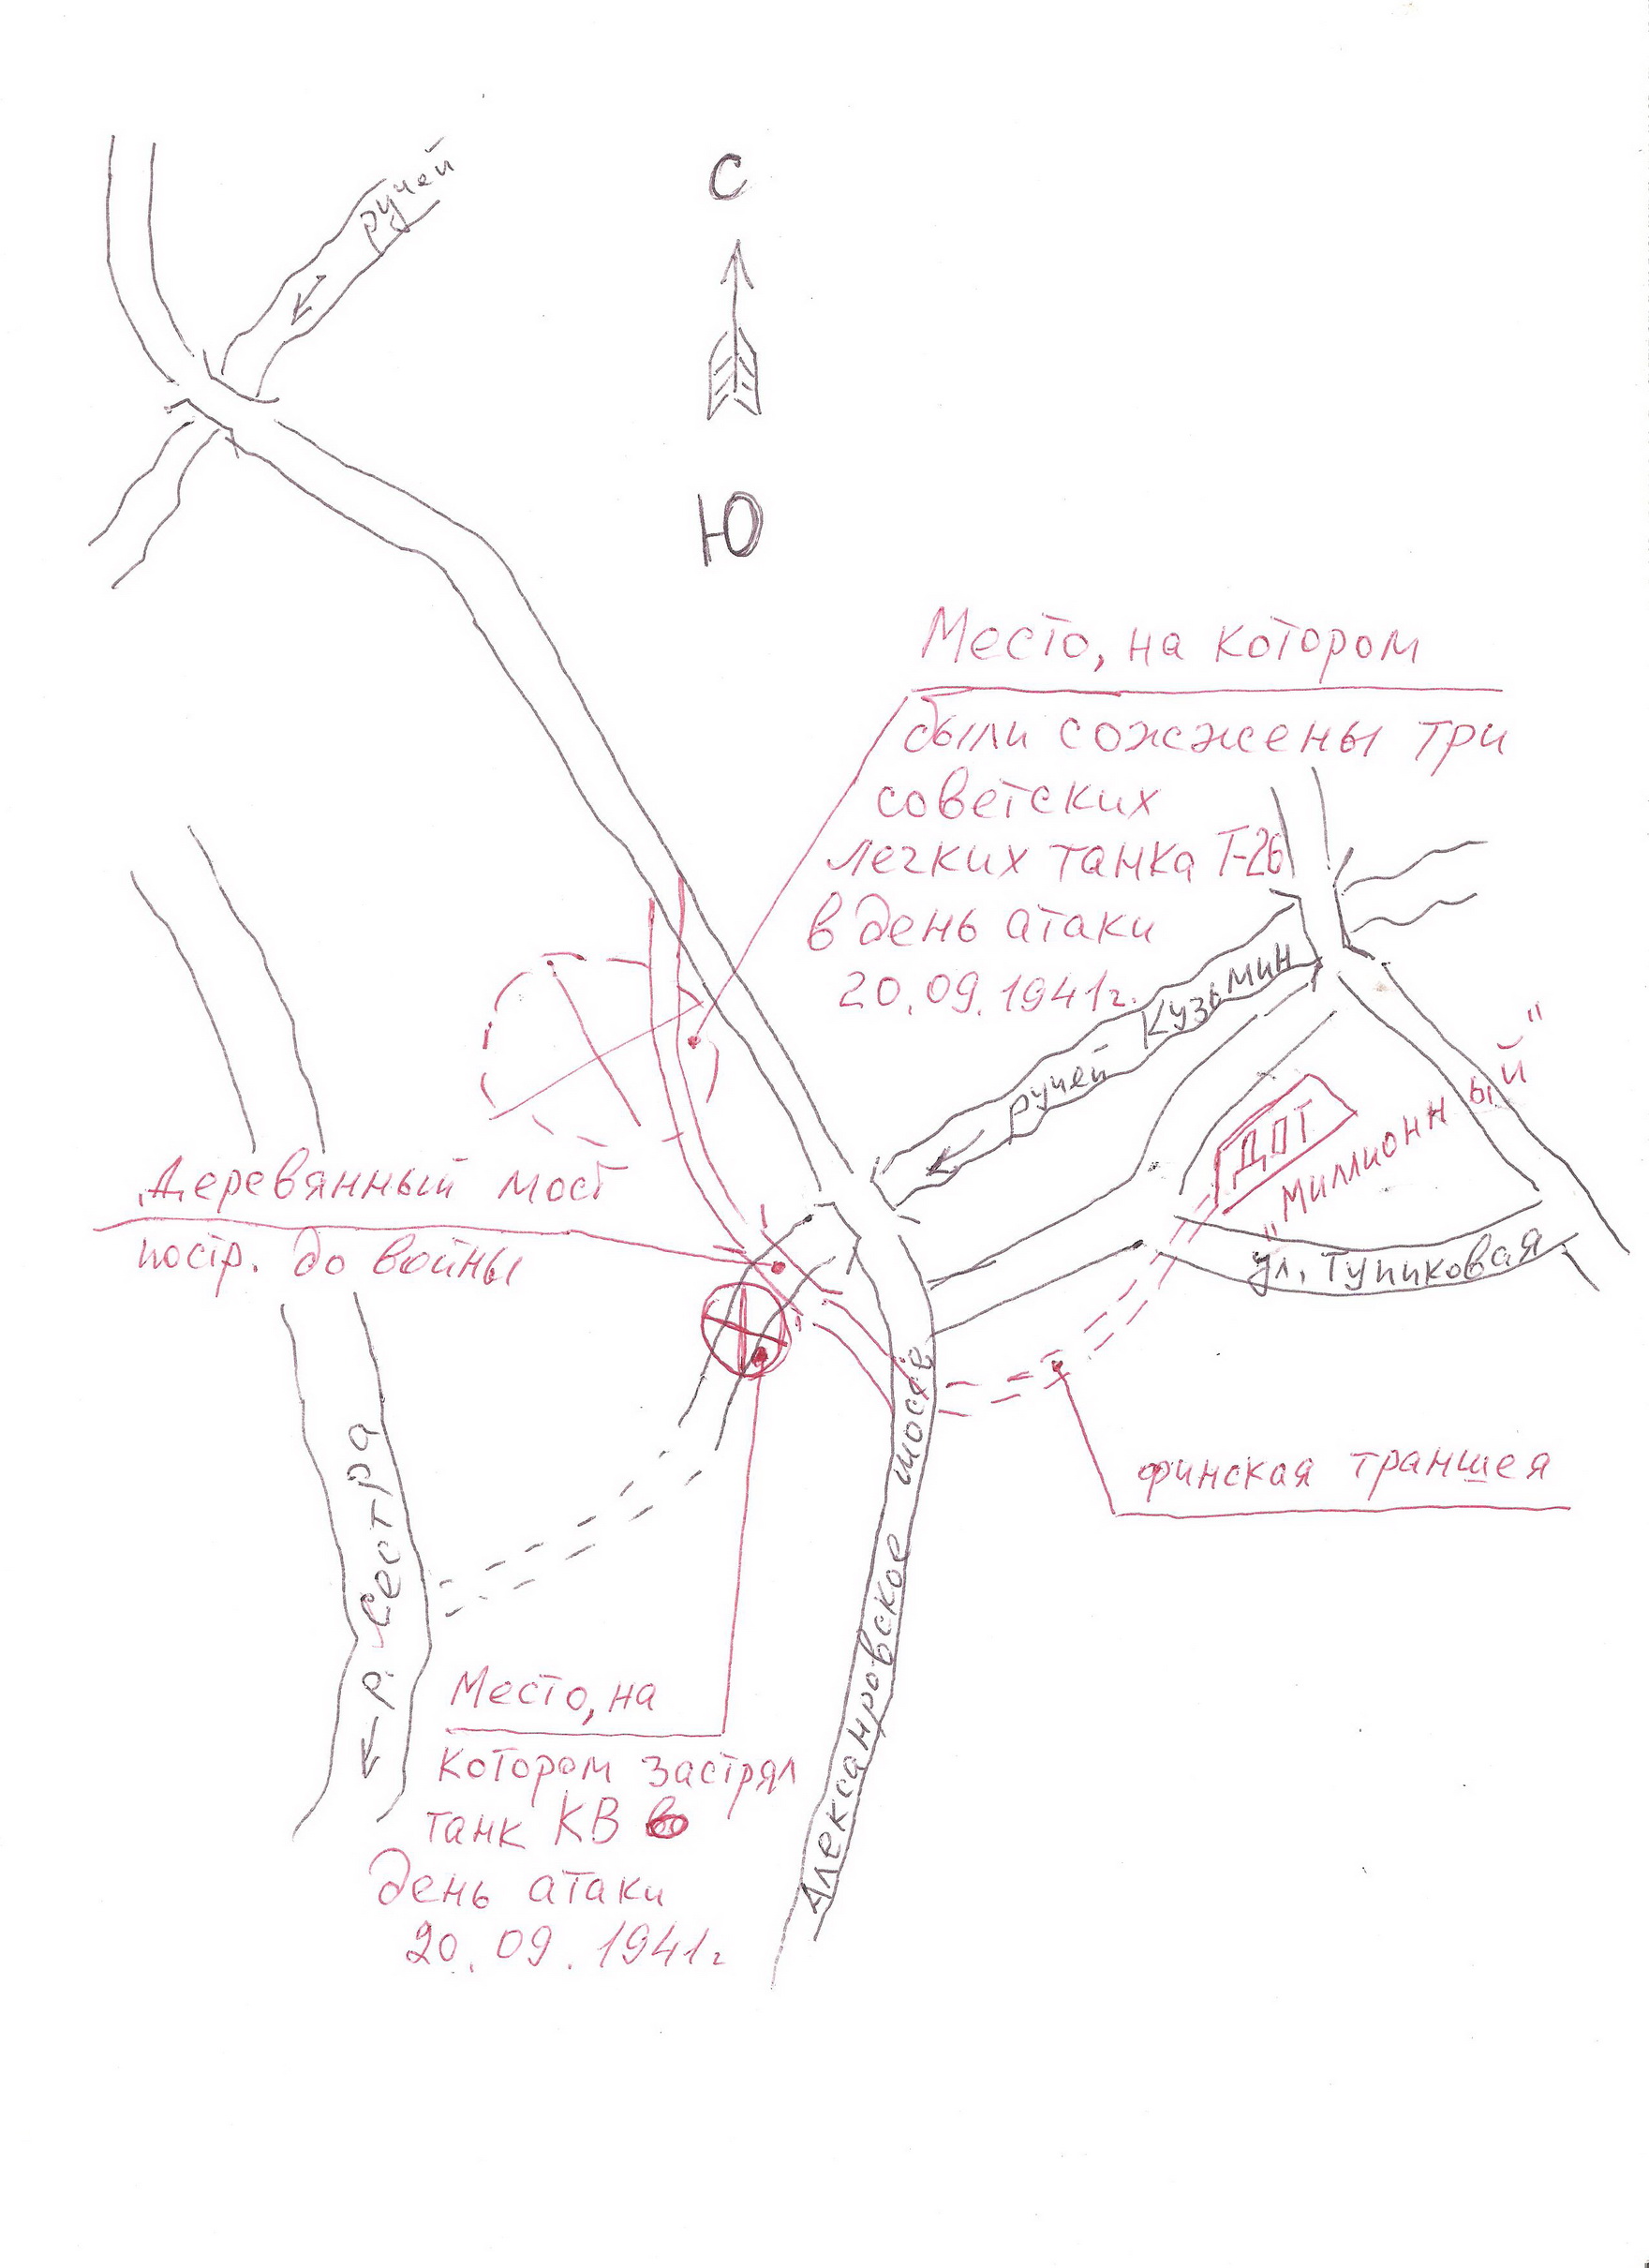 ручей
С
Ю
Место, на котором
были сожжены три
советских
легких танка Т-26
в день атаки
20.09.1941г.
ручей Кузьмин
ДОТ
"Миллионный"
Деревянный мост
постр. до войны
ул. Тупиковая
финская траншея
р. Сестра
Александровское шоссе
Место, на
котором застрял
танк КВ во
день атаки
20.09.1941г